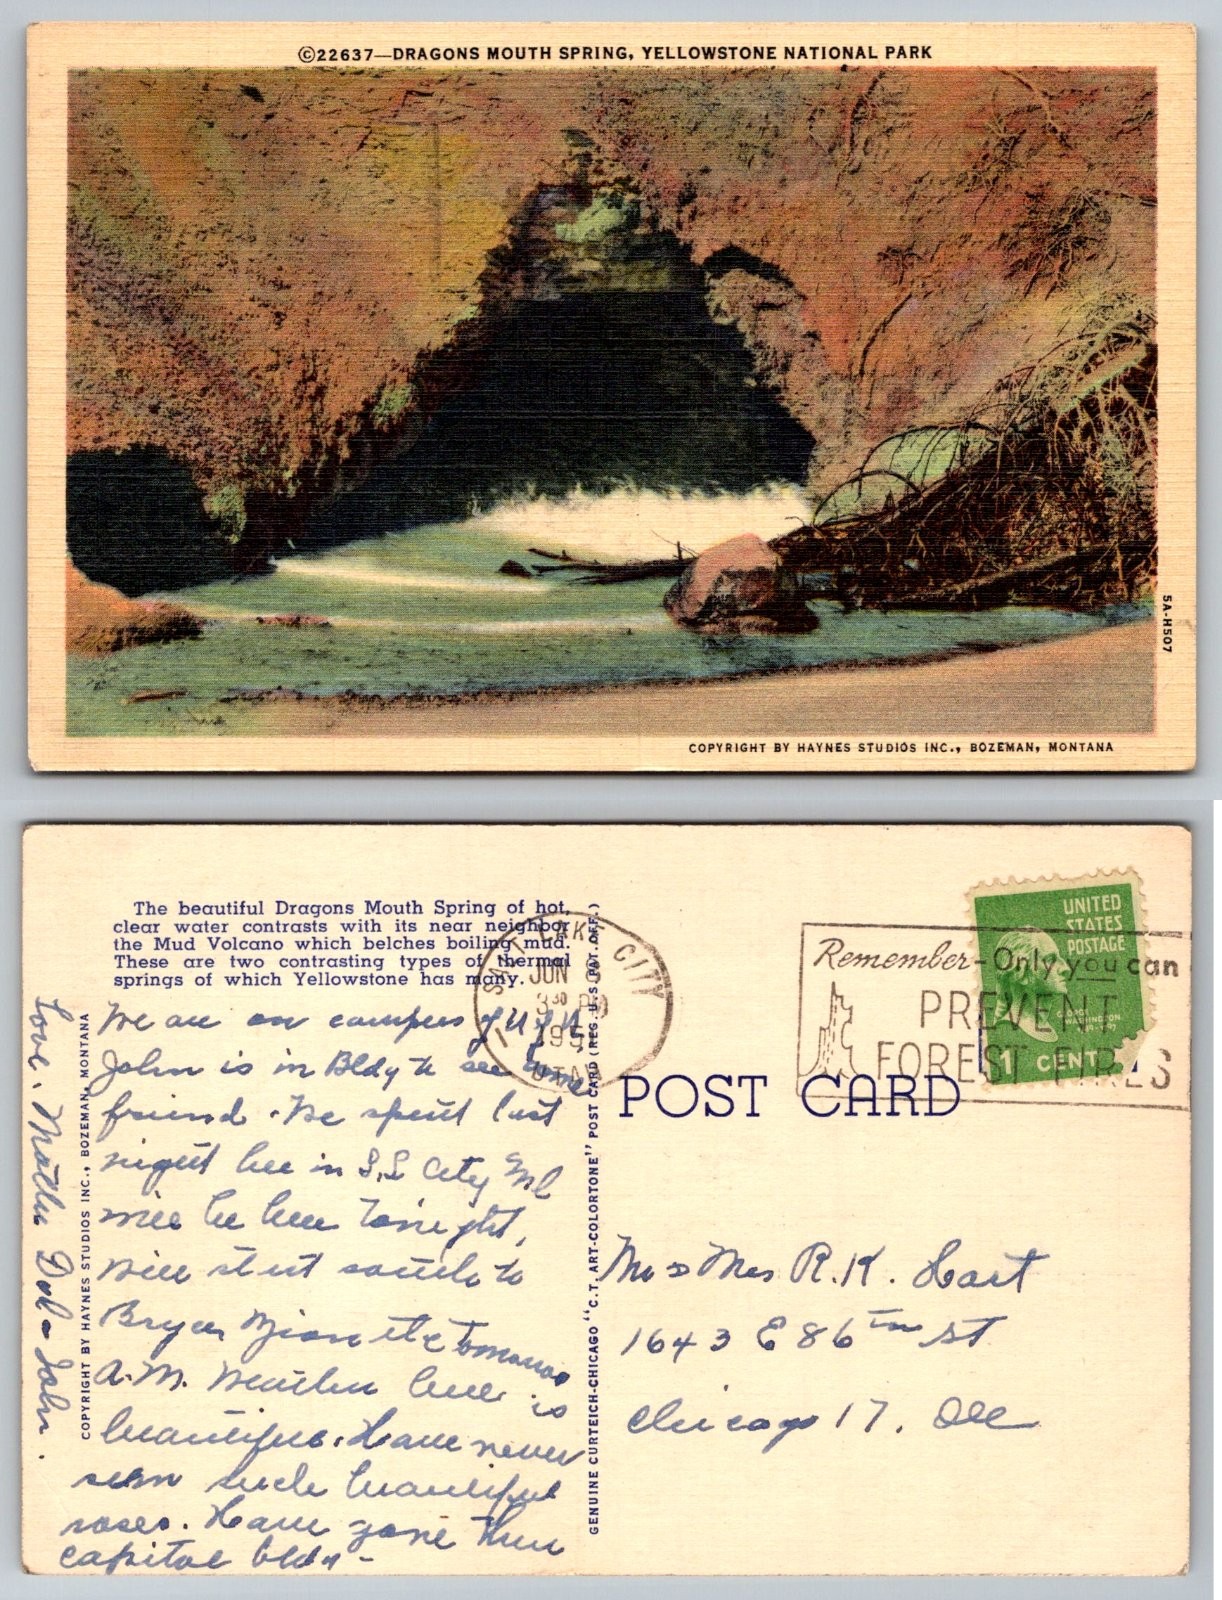 ©22637—DRAGONS MOUTH SPRING, YELLOWSTONE NATIONAL PARK
5A-H507
COPYRIGHT BY HAYNES STUDIOS INC., BOZEMAN, MONTANA
The beautiful Dragons Mouth Spring of hot,
clear water contrasts with its near neighbor
the Mud Volcano which belches boiling mud.
These are two contrasting types of thermal
springs of which Yellowstone has many.
We are on campus of U of U
John is in Bldg to see some
friend. We spent last
night here in S.L City
will be here tonight,
will start south to
Bryce Zion etc tomorrow
A.M. Weather here is
beautiful. Have never
seen such beautiful
roses. Have gone thru
capitol bldg -
Love. Mother Dad & John.
COPYRIGHT BY HAYNES STUDIOS INC., BOZEMAN, MONTANA
GENUINE CURTEICH-CHICAGO "C.T. ART-COLORTONE" POST CARD (REG. U.S. PAT. OFF.)
SALT LAKE CITY
JUN 8
3 30 PM
195
UTAH
Remember - Only you can
PREVENT
FOREST FIRES
UNITED
STATES
POSTAGE
GEORGE
WASHINGTON
1 CENT
POST CARD
Mr & Mrs R.K. Hart
1643 E 86th St
Chicago 17, Ill